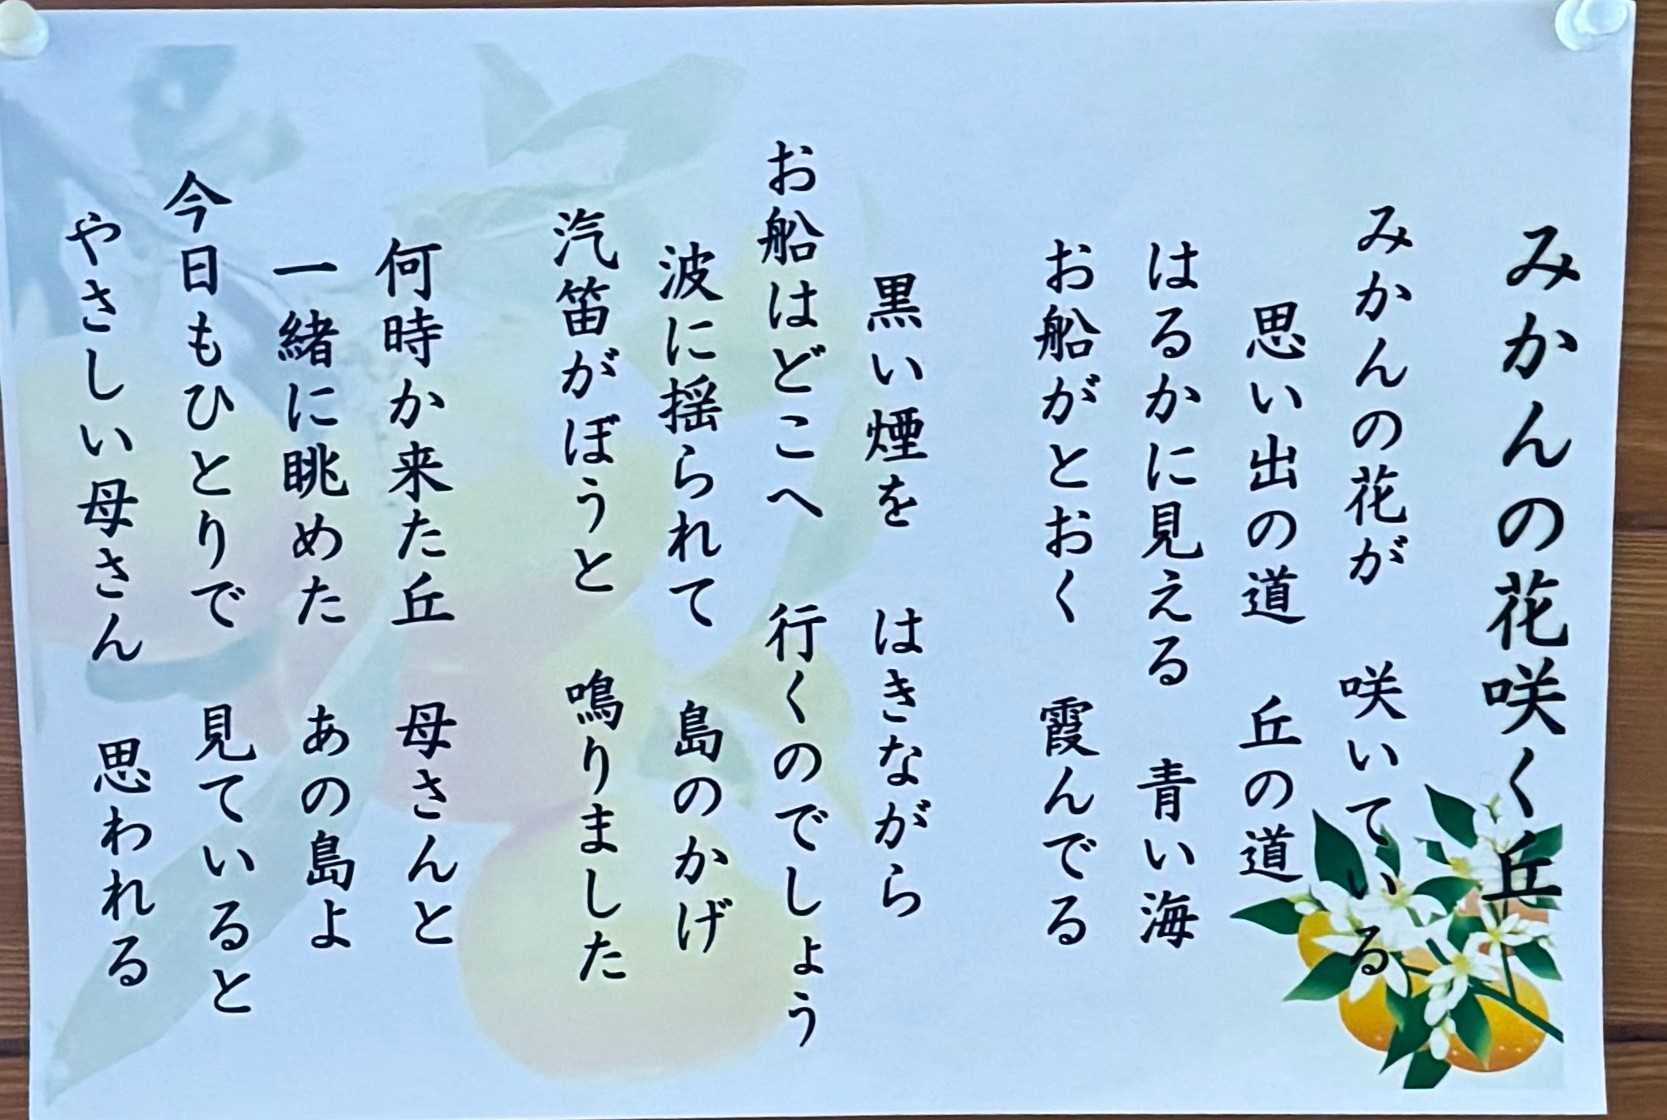 みかんの花咲く丘
みかんの花が　咲いている
思い出の道　丘の道
はるかに見える　青い海
お船がとおく　霞んでる
黒い煙を　はきながら
お船はどこへ　行くのでしょう
波に揺られて　島のかげ
汽笛がぼうと　鳴りました
何時か来た丘　母さんと
一緒に眺めた　あの島よ
今日もひとりで　見ていると
やさしい母さん　思われる